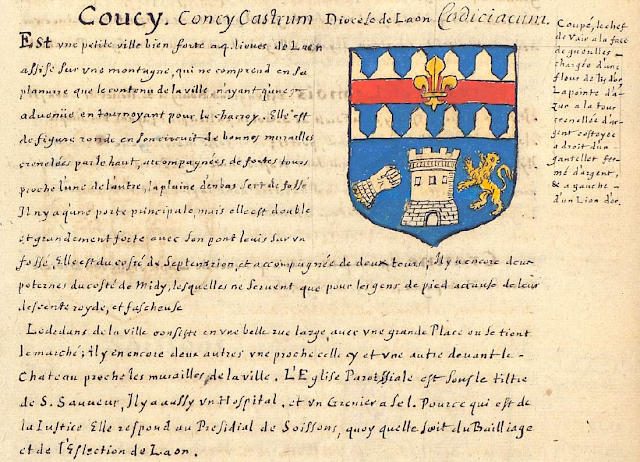 Coucy. Concy Castrum Diocese de Laon Codiciacum.
Est vne petite ville bien forte a 4. lieues de Laon
assise sur vne montagne, qui ne comprend en sa
planure que le contenu de la ville, n'ayant qu'une
advenüe en tournoyant pour le charroy. Elle est
de figure ronde en son circuit de bonnes murailles
crenelées par le haut, accompagnées de fortes tours
proche l'une de l'autre, la plaine d'en bas sert de fosse
Il n'y a qu'une porte principale, mais elle est double
et grandement forte avec son pont leuis sur vn
fossé, Elle est du costé de Septentrion, et accompagnée de deux tours, il y a encore deux
poternes du costé de Midy, lesquelles ne seruent que pour les gens de pied acause de leur
descente royde, et fascheuse
Le dedans de la ville consiste en vne belle rue large, auec vne grande Place ou se tient
le marché; il y en encore deux autres vne proche celle cy et vne autre deuant le
Chateau proche les murailles de la ville. L'Eglise Paroissiale est sous le tiltre
de S. Sauueur, Il y a aussy vn Hospital, et vn Grenier a Sel. Pour ce qui est de
la Justice Elle respond au Presidial de Soissons, quoy quelle soit du Bailliage
et de l'Eslection de Laon.
Coupé, le chef
de Vair a la face
de gueulles
chargée d'une
fleur de lis d'or
La pointe d'a-
zur a la tour
crenellée d'ar-
gent costoyée
a droit d'un
gantellet fer-
mé d'argent,
& a gauche
d'un Lion d'or.